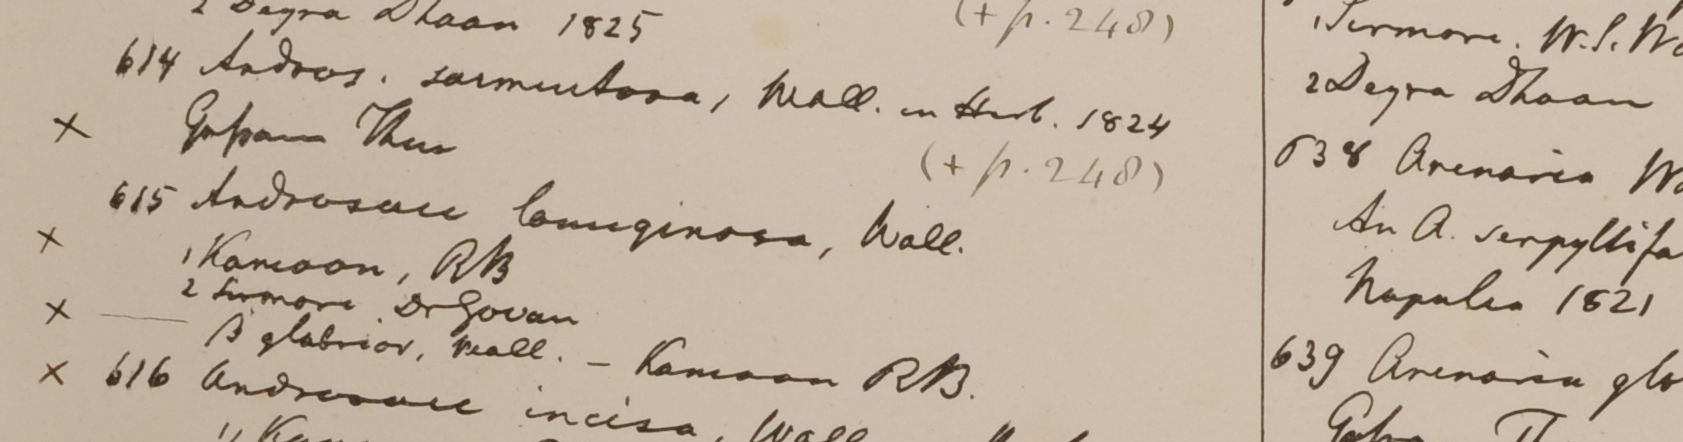 2 Deyra Dhoon 1825
(+ p. 248)
614 Andros. sarmentosa, Wall. in Herb. 1824
× Gossain Than
(+ p. 248)
615 Androsace lanuginosa, Wall.
× 1 Kamaon, RB
2 Sirmore. Dr Govan
× — β glabrior, Wall. – Kamaon RB.
× 616 Androsace incisa, Wall
1 Sirmore. W.S.
2 Deyra Dhoon
638 Arenaria
An A. serpyllifo
Napalia 1821
639 Arenaria glo